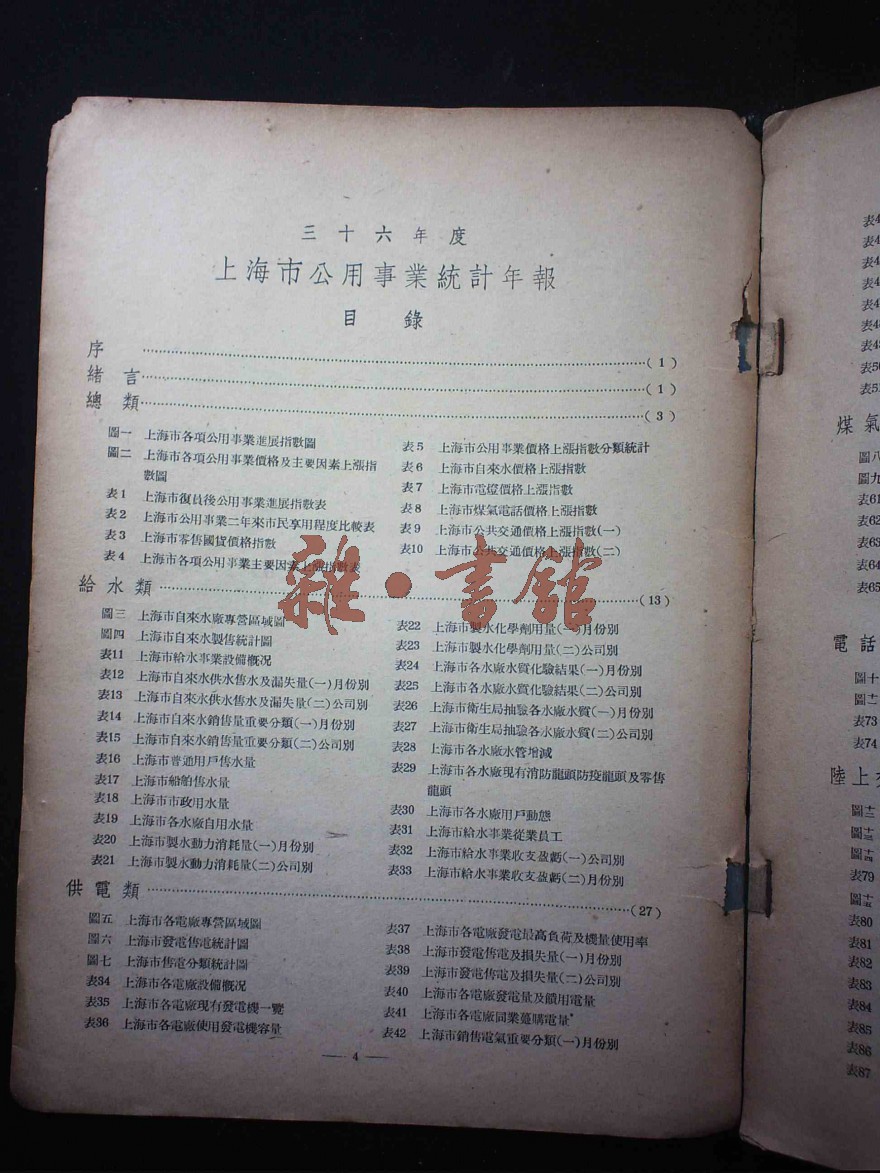 三十六年度
上海市公用事業統計年報
目錄
序 ……(1)
緒言 ……(1)
總類 ……(3)
圖一 上海市各項公用事業進展指數圖
圖二 上海市各項公用事業價格及主要因素上漲指
數圖
表1 上海市復員後公用事業進展指數表
表2 上海市公用事業二年來市民享用程度比較表
表3 上海市零售國貨價格指數
表4 上海市各項公用事業主要因素上漲指數表
表5 上海市公用事業價格上漲指數分類統計
表6 上海市自來水價格上漲指數
表7 上海市電燈價格上漲指數
表8 上海市煤氣電話價格上漲指數
表9 上海市公共交通價格上漲指數(一)
表10 上海市公共交通價格上漲指數(二)
雜·書館
給水類 ……(13)
圖三 上海市自來水廠專營區域圖
圖四 上海市自來水製售統計圖
表11 上海市給水事業設備概況
表12 上海市自來水供水售水及漏失量(一)月份別
表13 上海市自來水供水售水及漏失量(二)公司別
表14 上海市自來水銷售量重要分類(一)月份別
表15 上海市自來水銷售量重要分類(二)公司別
表16 上海市普通用戶售水量
表17 上海市船舶售水量
表18 上海市市政用水量
表19 上海市各水廠自用水量
表20 上海市製水動力消耗量(一)月份別
表21 上海市製水動力消耗量(二)公司別
表22 上海市製水化學劑用量(一)月份別
表23 上海市製水化學劑用量(二)公司別
表24 上海市各水廠水質化驗結果(一)月份別
表25 上海市各水廠水質化驗結果(二)公司別
表26 上海市衛生局抽驗各水廠水質(一)月份別
表27 上海市衛生局抽驗各水廠水質(二)公司別
表28 上海市各水廠水管增減
表29 上海市各水廠現有消防龍頭防疫龍頭及零售
龍頭
表30 上海市各水廠用戶動態
表31 上海市給水事業從業員工
表32 上海市給水事業收支盈虧(一)公司別
表33 上海市給水事業收支盈虧(二)月份別
供電類 ……(27)
圖五 上海市各電廠專營區域圖
圖六 上海市發電售電統計圖
圖七 上海市售電分類統計圖
表34 上海市各電廠設備概況
表35 上海市各電廠現有發電機一覽
表36 上海市各電廠使用發電機容量
表37 上海市各電廠發電最高負荷及機量使用率
表38 上海市發電售電及損失量(一)月份別
表39 上海市發電售電及損失量(二)公司別
表40 上海市各電廠發電量及饋用電量
表41 上海市各電廠同業躉購電量
表42 上海市銷售電氣重要分類(一)月份別
— 4 —
表50
表51
煤氣
圖八
圖九
表61
表62
表63
表64
表65
電話
圖十
表73
表74
陸上
表79
表80
表81
表82
表83
表84
表85
表86
表87